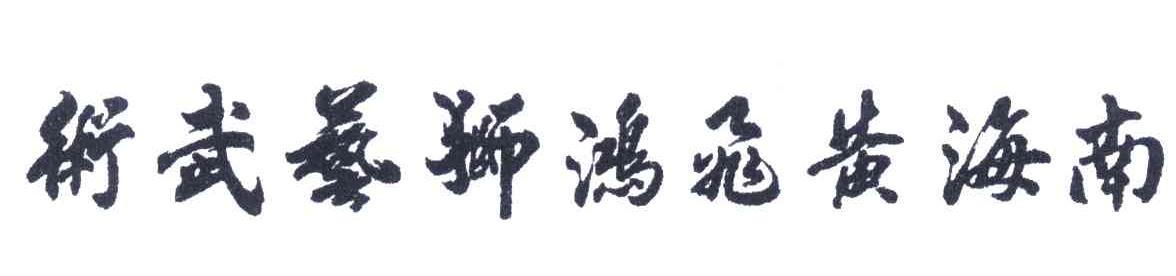 南海黃飛鴻獅藝武術